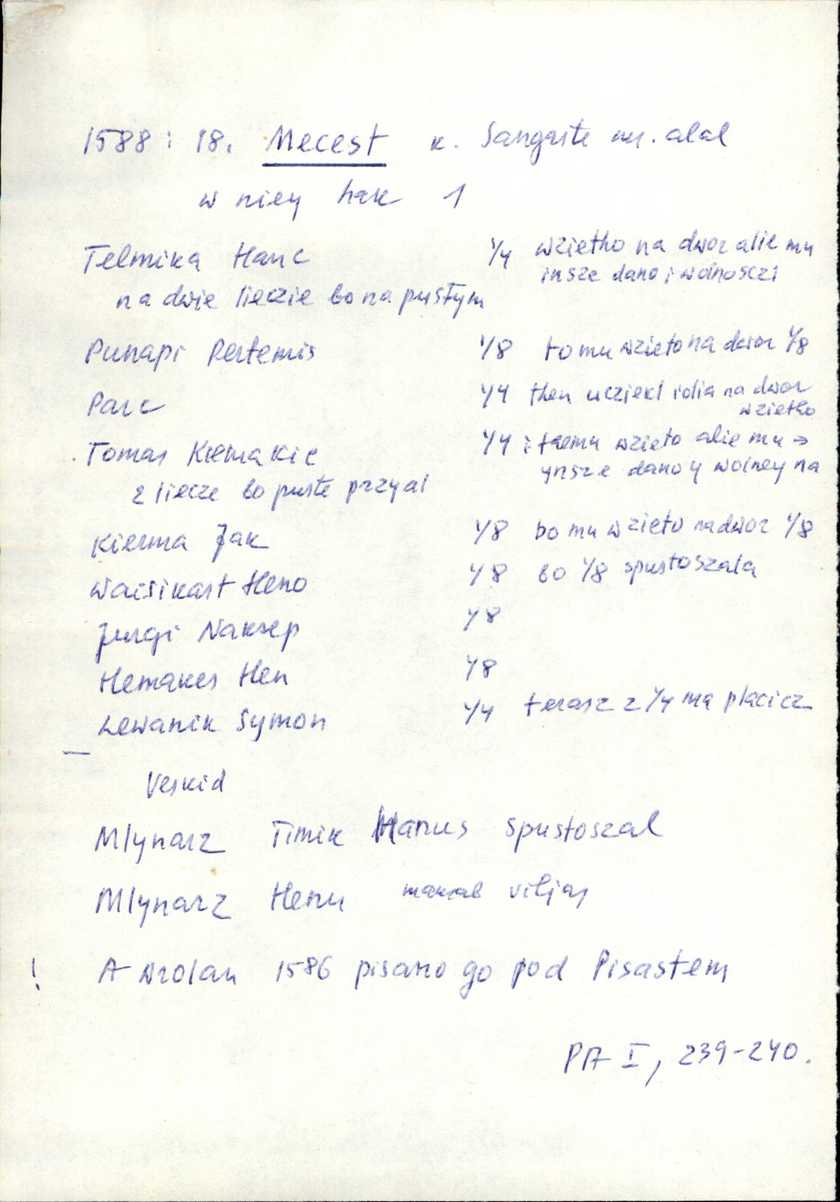 1588: 18. Mecest k. Sangaste mr. alal
w niey hak 1
Telmika Hanc 1/4 wzietho na dwor alie mu
insze dano i wolnosczi
na dwie lieczie bo na pustym
Punapi Pertemis 1/8 tomu wzieto na dwor 1/8
Parc 1/4 then ucziekl rolia na dwor
wzietho
Tomas Kiemakic 1/4 i temu wzieto alie mu →
ynsze dano y wolney na
2 liecze bo puste przyal
Kierma Jak 1/8 bo mu wzieto nadwor 1/8
Waisikast Heno 1/8 bo 1/8 spustoszala
Jurgi Naksep 1/8
Hemakes Hen 1/8
Lewanik Symon 1/4 terasz z 1/4 ma placicz
Veskid
Mlynarz Timik Hanus spustoszal
Mlynarz Henu maksab viljas
! A wrolau 1586 pisano go pod Pisastem
PA I, 239-240.